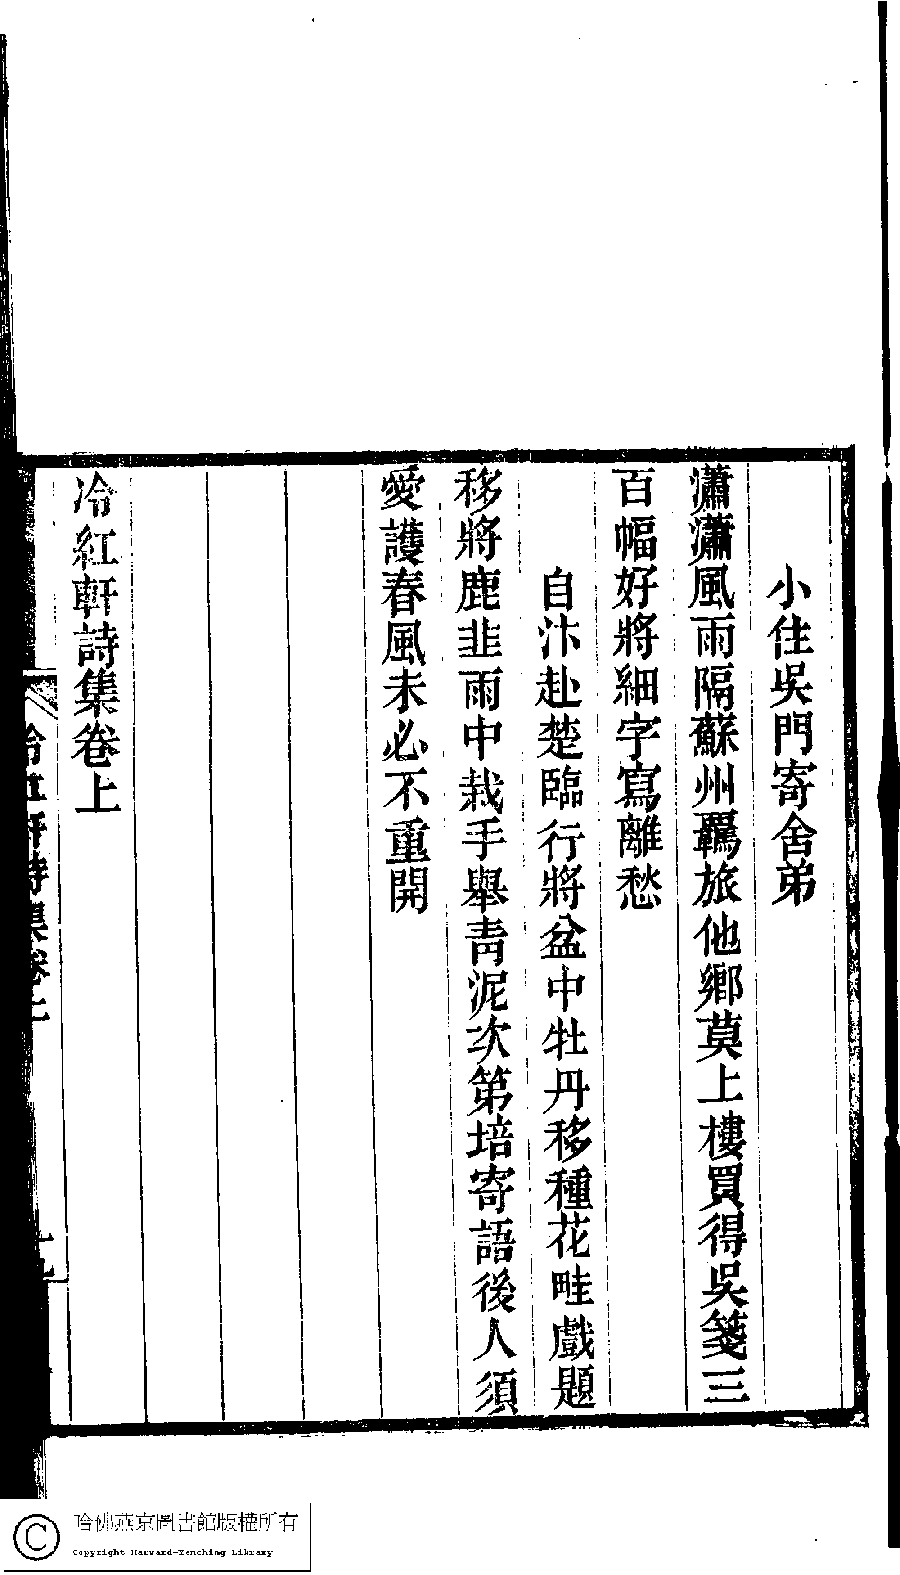 小住吳門寄舍弟
瀟瀟風雨隔蘇州羈旅他鄉莫上樓買得吳箋三
百幅好將細字寫離愁
自汴赴楚臨行將盆中牡丹移種花畦戲題
移將鹿韭雨中栽手舉青泥次第培寄語後人須
愛護春風未必不重開
冷紅軒詩集卷上
冷紅軒詩集卷上
哈佛燕京圖書館版權所有
Copyright Harvard-Yenching Library